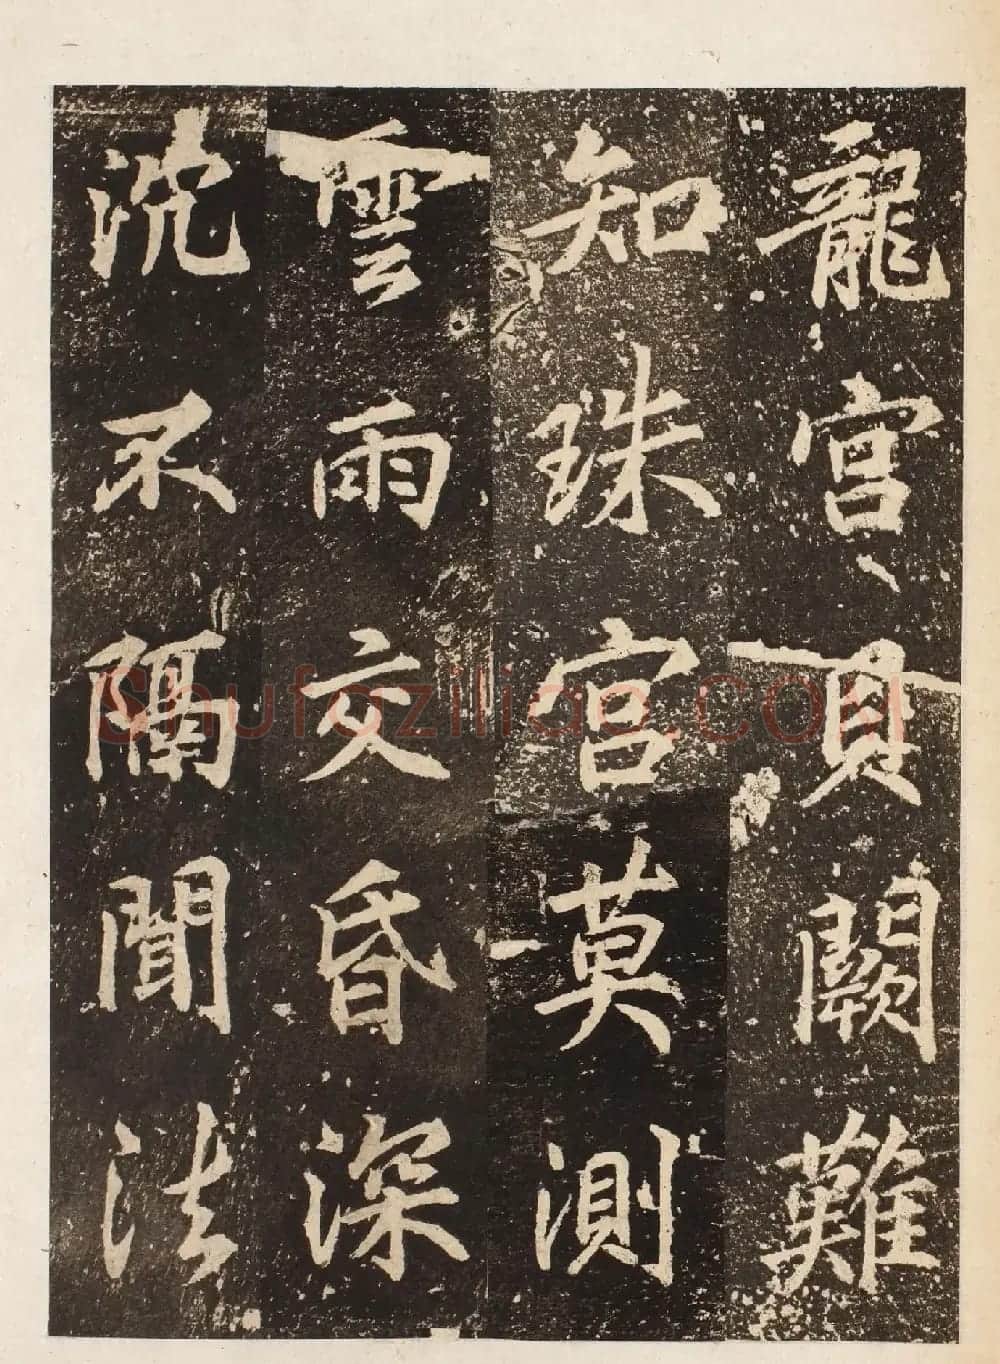 龍宮貝闕難
知珠宮莫測
雲雨交昏深
沈不隔聞法
Shufaziliao.COM